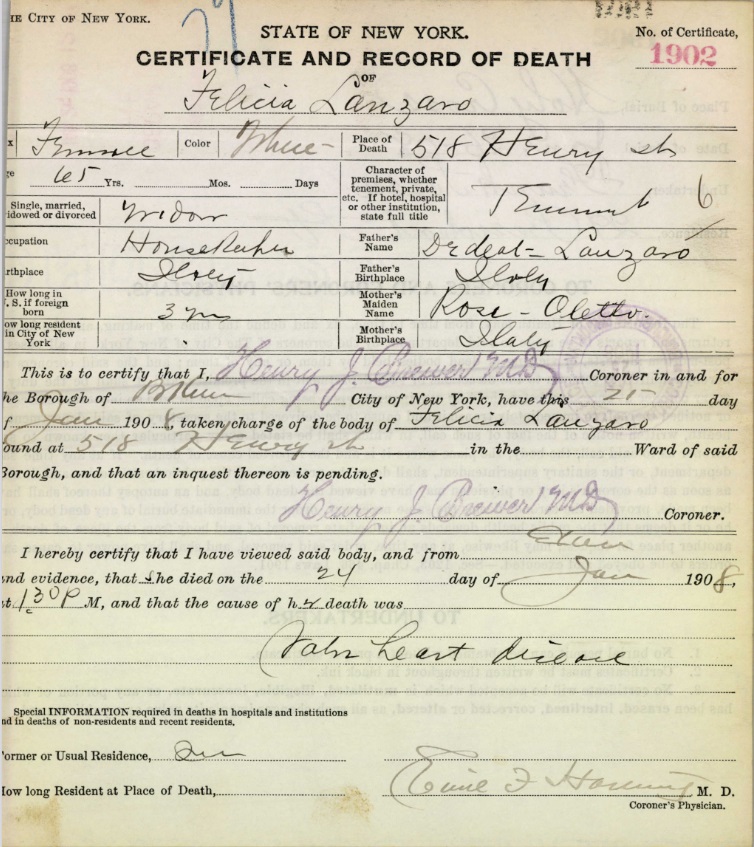 HE CITY OF NEW YORK.
STATE OF NEW YORK.
No. of Certificate,
1902
CERTIFICATE AND RECORD OF DEATH
OF
Felicia Lanzaro
Color White
Place of Death 518 Henry St
65 Yrs. Mos. Days
Character of premises, whether tenement, private, etc. If hotel, hospital or other institution, state full title
6
Single, married, widowed or divorced Widow
ccupation Housekeeper
Father's Name Lanzaro
irthplace Italy
Father's Birthplace Italy
How long in U. S. if foreign born 3 yrs
Mother's Maiden Name Rose - Oletto.
ow long resident in City of New York
Mother's Birthplace Italy
This is to certify that I, Henry J. Brewer M D Coroner in and for
he Borough of Bklyn City of New York, have this 25 day
f Jan 1908, taken charge of the body of Felicia Lanzaro
ound at 518 Henry St in the Ward of said
Borough, and that an inquest thereon is pending.
Henry J. Brewer M D Coroner.
I hereby certify that I have viewed said body, and from Exam
nd evidence, that she died on the 24 day of Jan 1908,
t 1.30 P M, and that the cause of h death was
Valv heart disease
Special INFORMATION required in deaths in hospitals and institutions
nd in deaths of non-residents and recent residents.
ormer or Usual Residence,
How long Resident at Place of Death,
M. D.
Coroner's Physician.